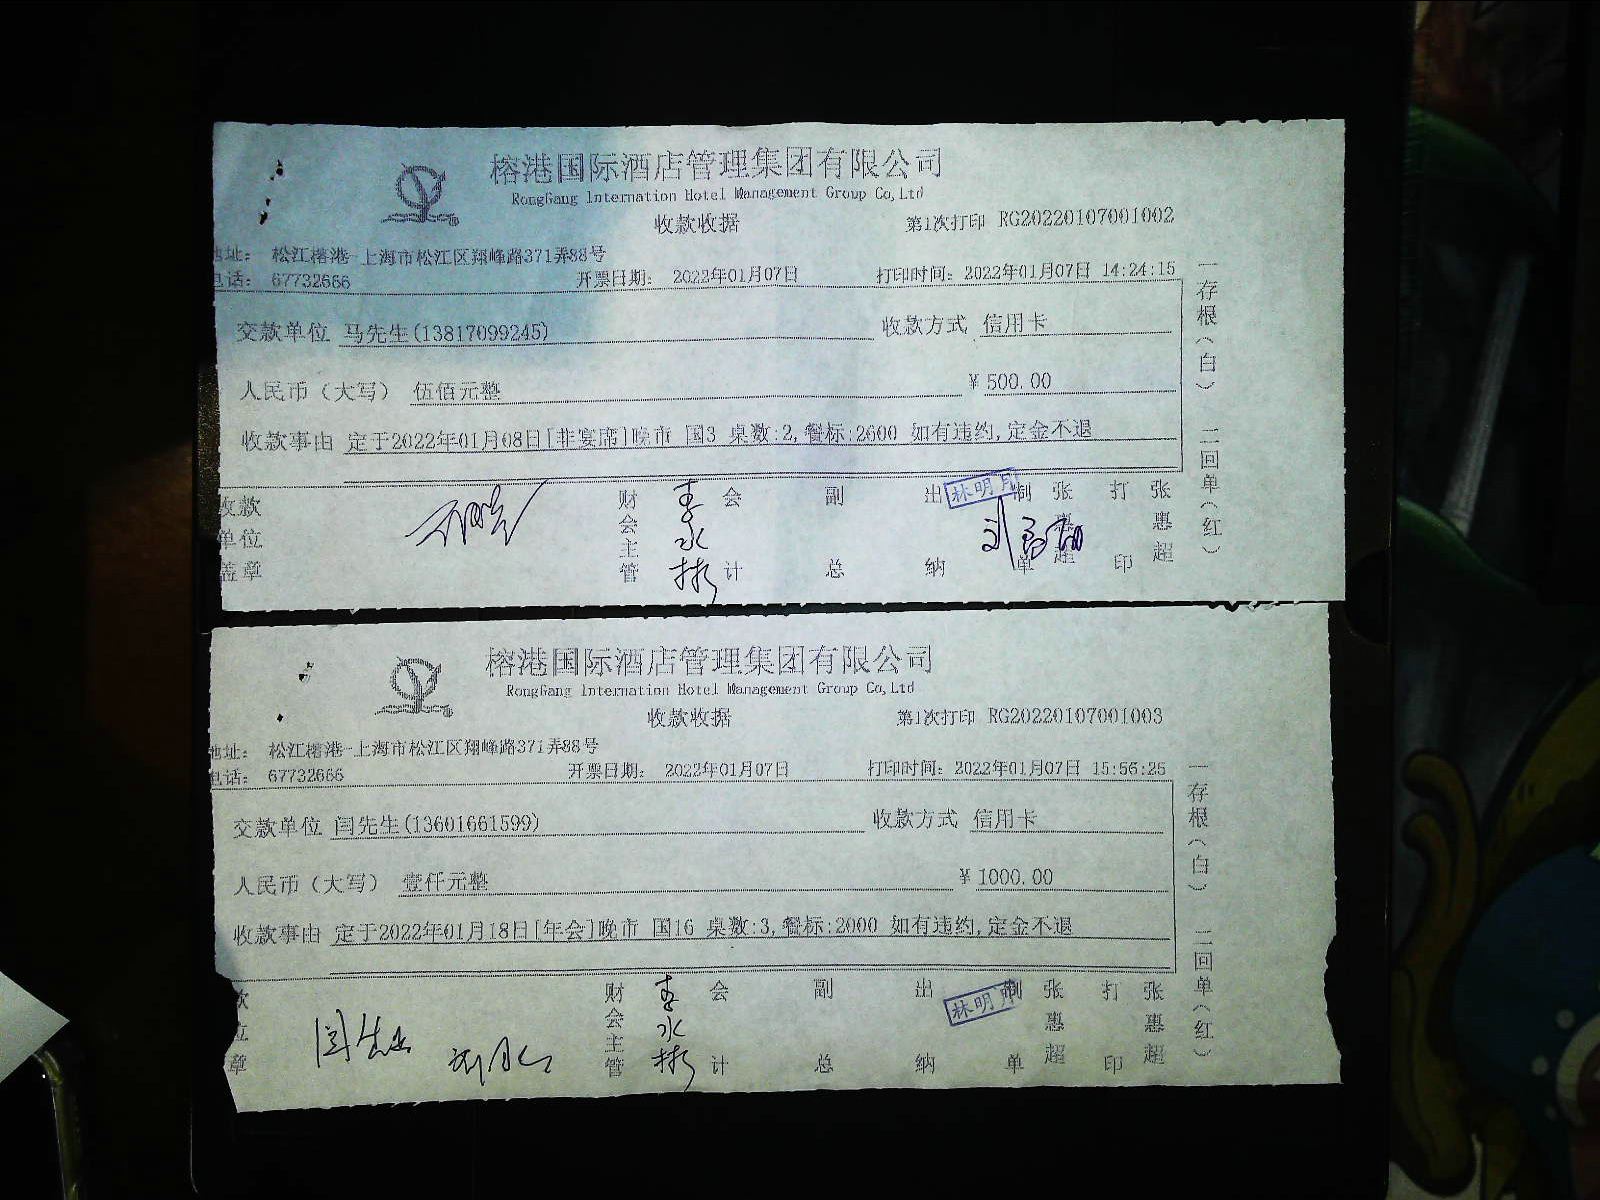 榕港国际酒店管理集团有限公司
RongGang Internation Hotel Management Group Co,Ltd
收款收据 第1次打印 RG20220107001002
地址： 松江榕港-上海市松江区翔峰路371弄88号
电话： 67732666 开票日期： 2022年01月07日 打印时间：2022年01月07日 14:24:15
交款单位 马先生(13817099245) 收款方式 信用卡
人民币（大写） 伍佰元整 ￥500.00
收款事由 定于2022年01月08日[非宴席]晚市 国3 桌数:2,餐标:2600 如有违约,定金不退
收款单位盖章 财会主管 李水彬 会计 副总 出纳 林明月 制单 张惠超 打印 张惠超
一存根（白） 二回单（红）
榕港国际酒店管理集团有限公司
RongGang Internation Hotel Management Group Co,Ltd
收款收据 第1次打印 RG20220107001003
地址： 松江榕港-上海市松江区翔峰路371弄88号
电话： 67732666 开票日期： 2022年01月07日 打印时间：2022年01月07日 15:56:25
交款单位 闫先生(13601661599) 收款方式 信用卡
人民币（大写） 壹仟元整 ￥1000.00
收款事由 定于2022年01月18日[年会]晚市 国16 桌数:3,餐标:2000 如有违约,定金不退
款位章 闫先生 财会主管 李水彬 会计 副总 出纳 林明月 制单 张惠超 打印 张惠超
一存根（白） 二回单（红）